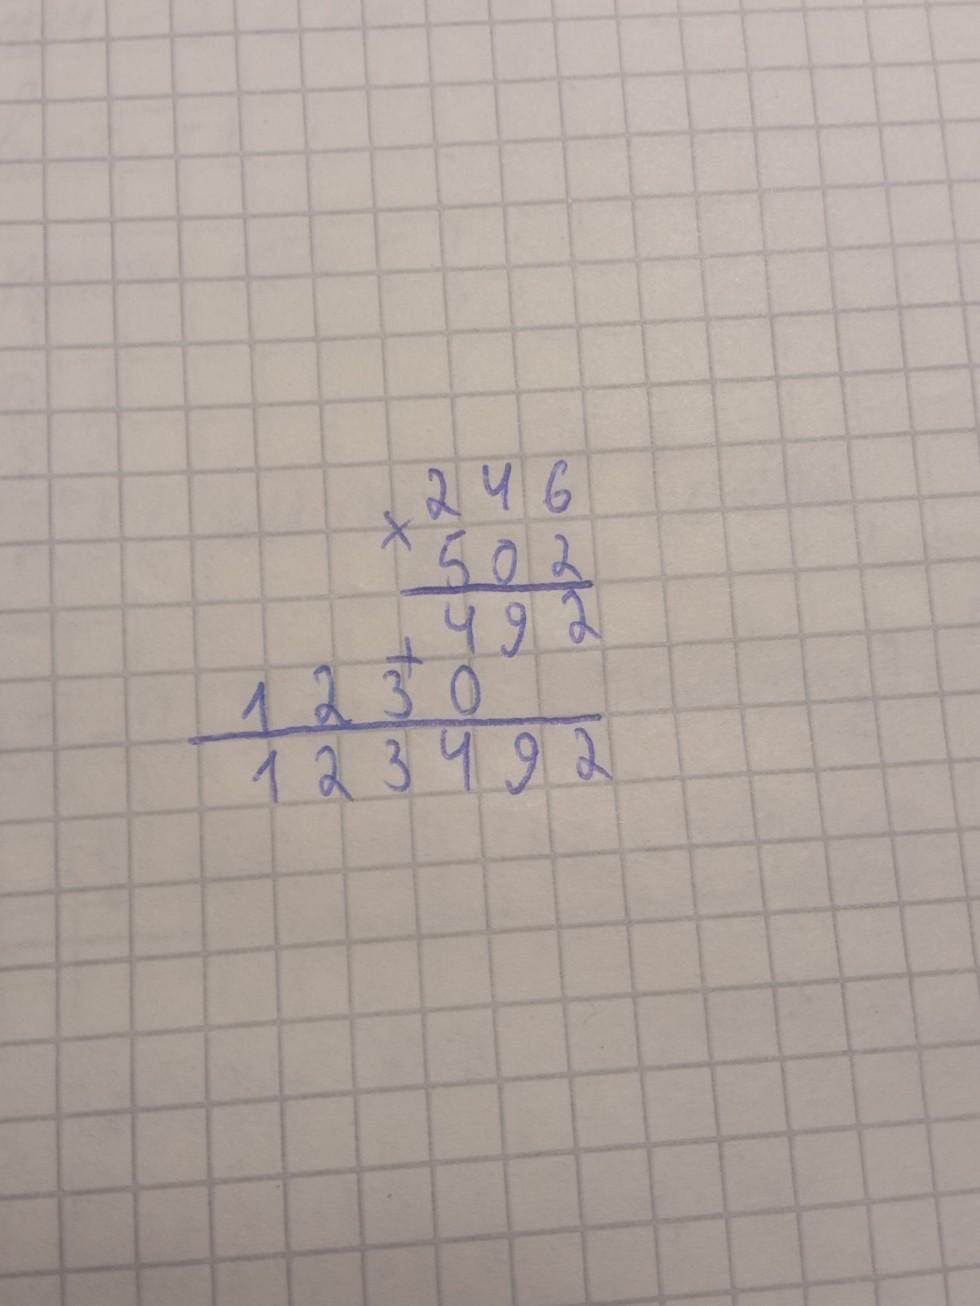 246
×
502
492
+
1230
123492